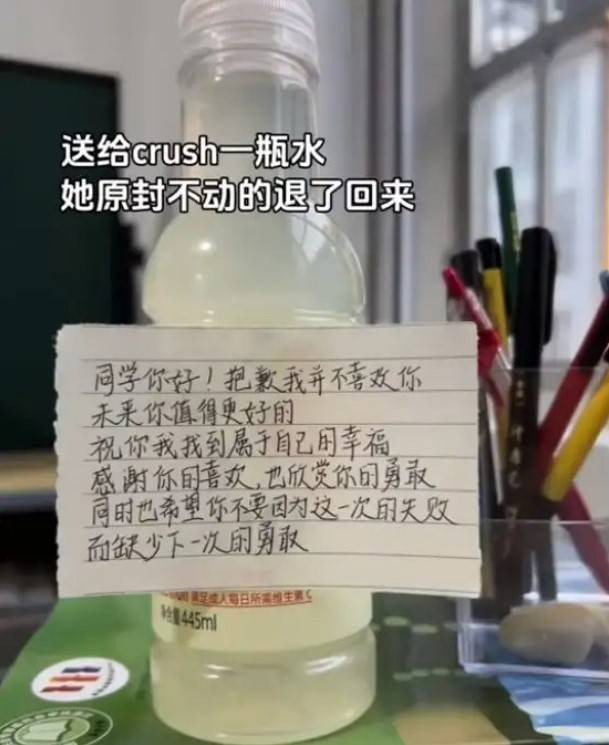 送给crush一瓶水
她原封不动的退了回来
同学你好！抱歉我并不喜欢你
未来你值得更好的
祝你我找到属于自己的幸福
感谢你的喜欢，也欣赏你的勇敢
同时也希望你不要因为这一次的失败
而缺少下一次的勇敢
满足成人每日所需维生素C
净含量445ml